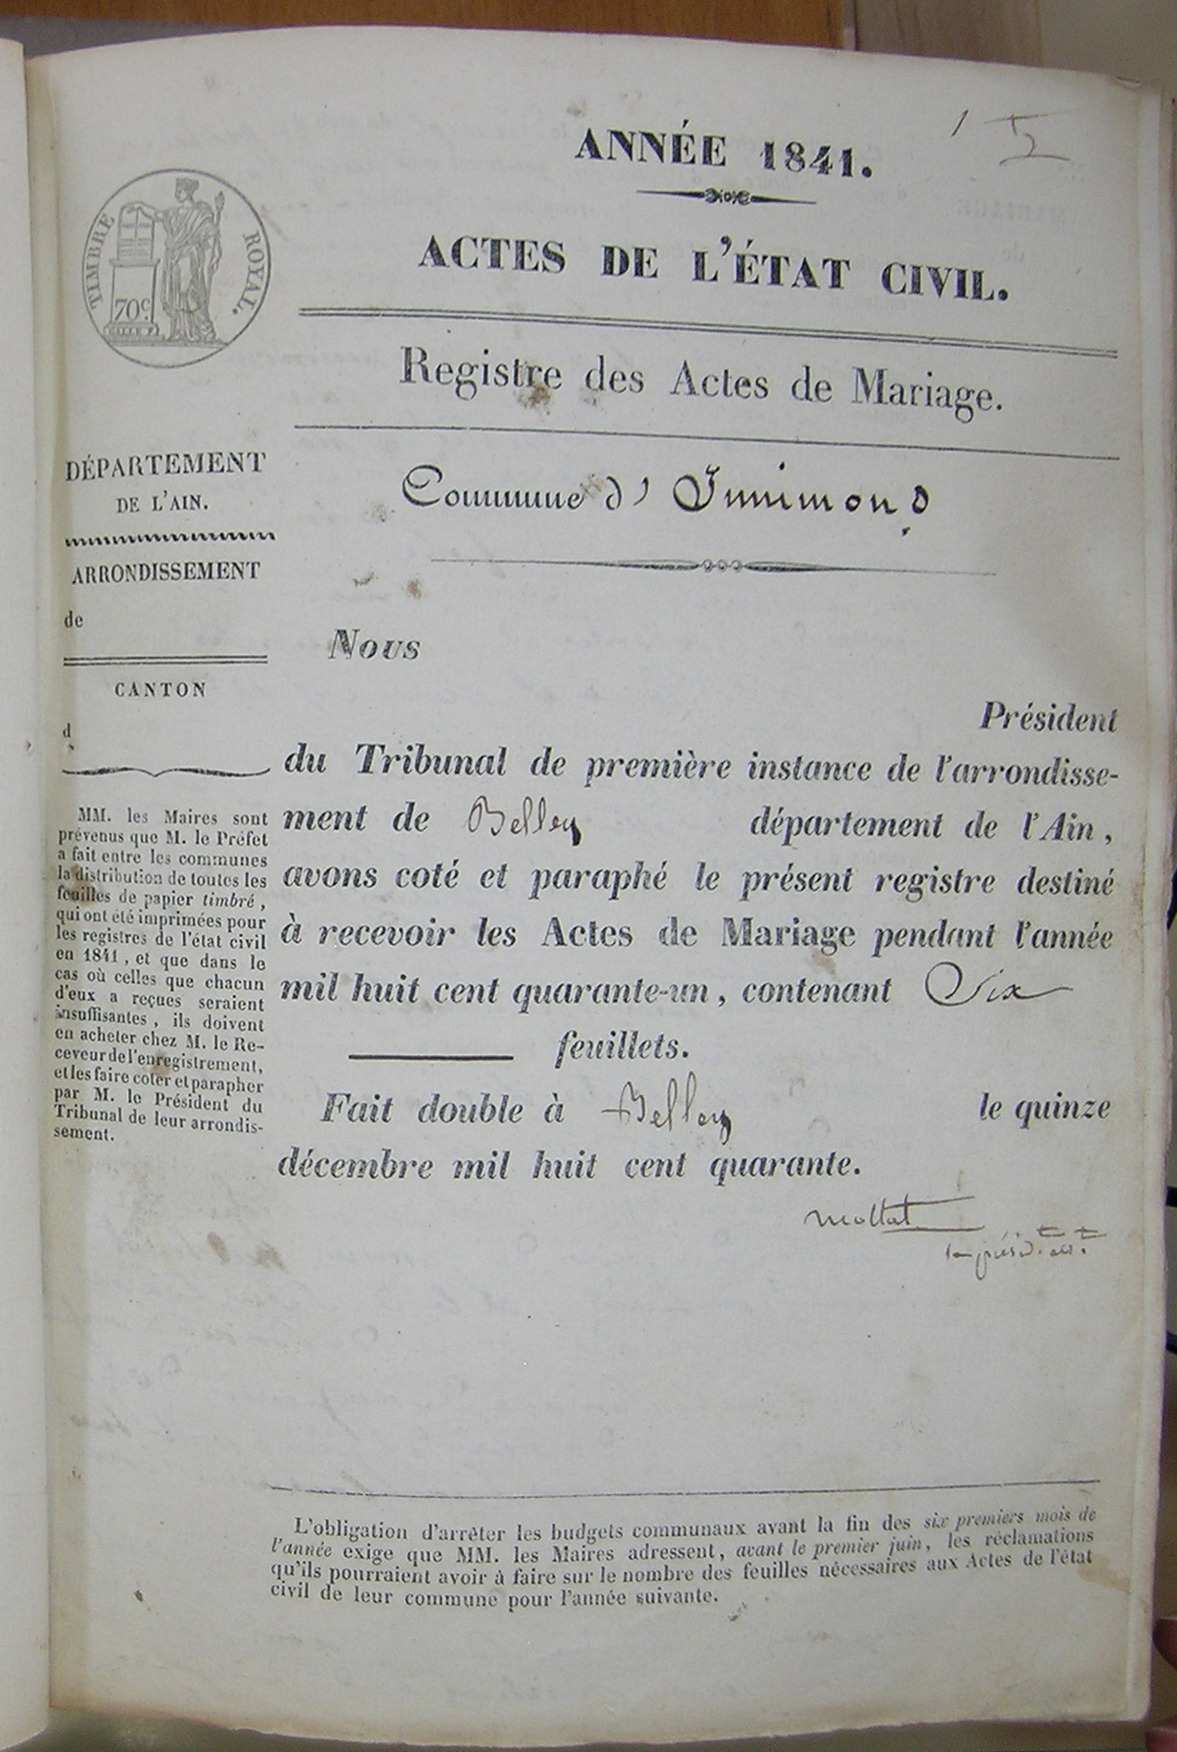 1
ANNÉE 1841.
ACTES DE L'ÉTAT CIVIL.
Registre des Actes de Mariage.
TIMBRE ROYAL.
70c.
DÉPARTEMENT
DE L'AIN.
ARRONDISSEMENT
de
CANTON
d
MM. les Maires sont
prévenus que M. le Préfet
a fait entre les communes
la distribution de toutes les
feuilles de papier timbré,
qui ont été imprimées pour
les registres de l'état civil
en 1841, et que dans le
cas où celles que chacun
d'eux a reçues seraient
insuffisantes, ils doivent
en acheter chez M. le Re-
ceveur de l'enregistrement,
et les faire coter et parapher
par M. le Président du
Tribunal de leur arrondis-
sement.
Commune d'Innimond
Nous
Président
du Tribunal de première instance de l'arrondisse-
ment de Belley département de l'Ain,
avons coté et paraphé le présent registre destiné
à recevoir les Actes de Mariage pendant l'année
mil huit cent quarante-un, contenant Six
feuillets.
Fait double à Belley le quinze
décembre mil huit cent quarante.
L'obligation d'arrêter les budgets communaux avant la fin des six premiers mois de
l'année exige que MM. les Maires adressent, avant le premier juin, les réclamations
qu'ils pourraient avoir à faire sur le nombre des feuilles nécessaires aux Actes de l'état
civil de leur commune pour l'année suivante.